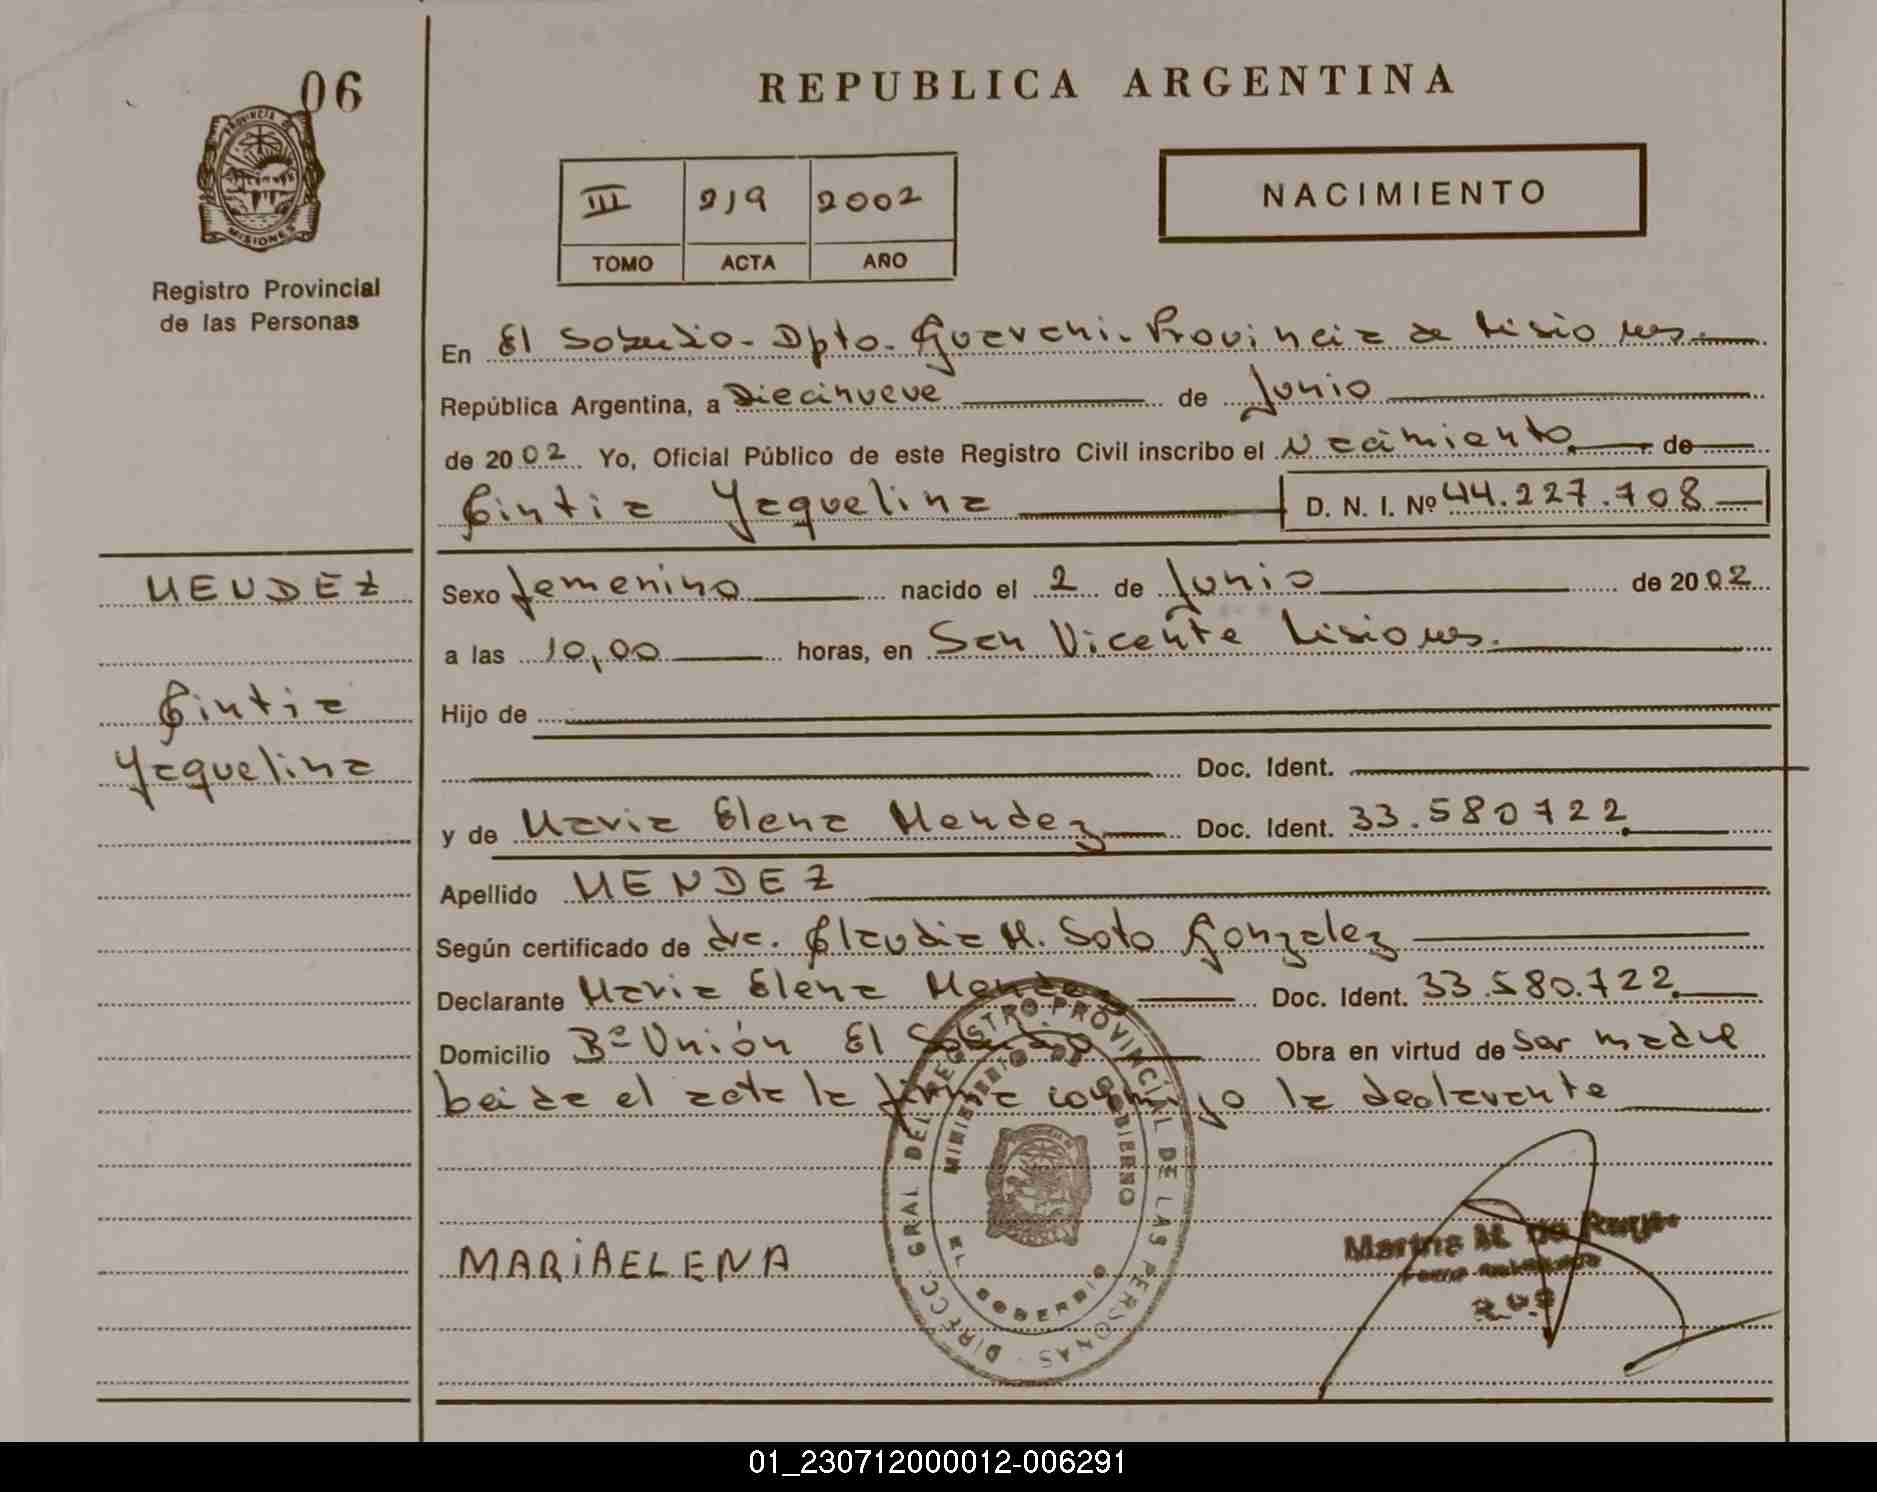 06
PROVINCIA DE
MISIONES
Registro Provincial
de las Personas
REPUBLICA ARGENTINA
III 219 2002
TOMO ACTA AÑO
NACIMIENTO
En El Soberbio - Dpto. Guarani - Provincia de Misiones.
República Argentina, a Diecinueve de Junio
de 2002 Yo, Oficial Público de este Registro Civil inscribo el Nacimiento de
Cintia Yaquelina D. N. I. Nº 44.227.708
MENDEZ
Cintia
Yaquelina
Sexo femenino nacido el 2 de Junio de 2002
a las 10,00 horas, en San Vicente Misiones.
Hijo de
Doc. Ident.
y de Maria Elena Mendez Doc. Ident. 33.580722
Apellido MENDEZ
Según certificado de dra. Claudia M. Soto Gonzalez
Declarante Maria Elena Mendez Doc. Ident. 33.580.722
Domicilio Bº Unión El Soberbio Obra en virtud de ser madre
Leida el acta la firma conmigo la declarante
MARiAELENA
DIRECC. GRAL DEL REGISTRO PROVINCIAL DE LAS PERSONAS
MINISTERIO DE GOBIERNO
EL SOBERBIO
Marina M. Da
01_230712000012-006291